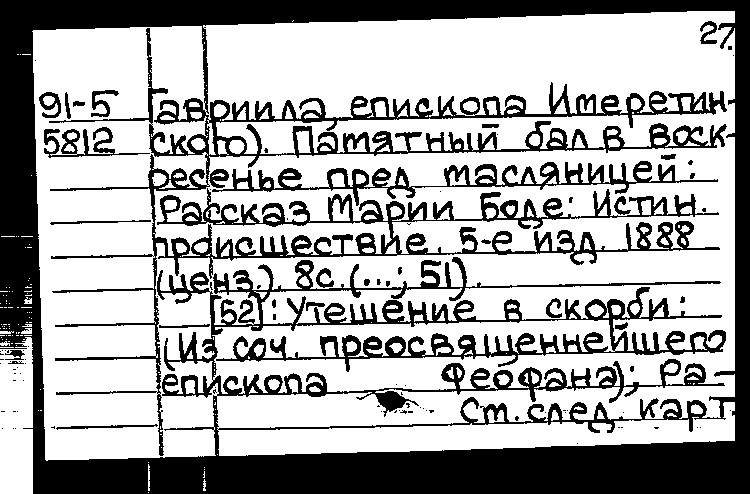 27.
91-5 Гавриила, епископа Имеретин-
5812 ского). Памятный бал в воск-
ресенье пред масляницей:
Рассказ Марии Боде: Истин.
происшествие. 5-е изд. 1888
(ценз.). 8с. (...; 51).
[52]: Утешение в скорби:
(Из соч. преосвященнейшего
епископа Феофана); Ра-
См. след. карт.